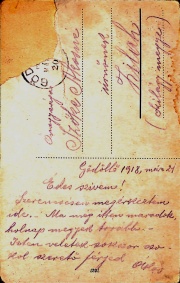 Szőke
úrnőnek
Zilah
(Szilágy megye)
Gödöllő 1918. márc. 21
Édes szivem!
Szerencsésen megérkeztem
ide. Ma még itten maradok,
holnap megyek tovább.
Isten veletek sokszor
csókol szerető férjed